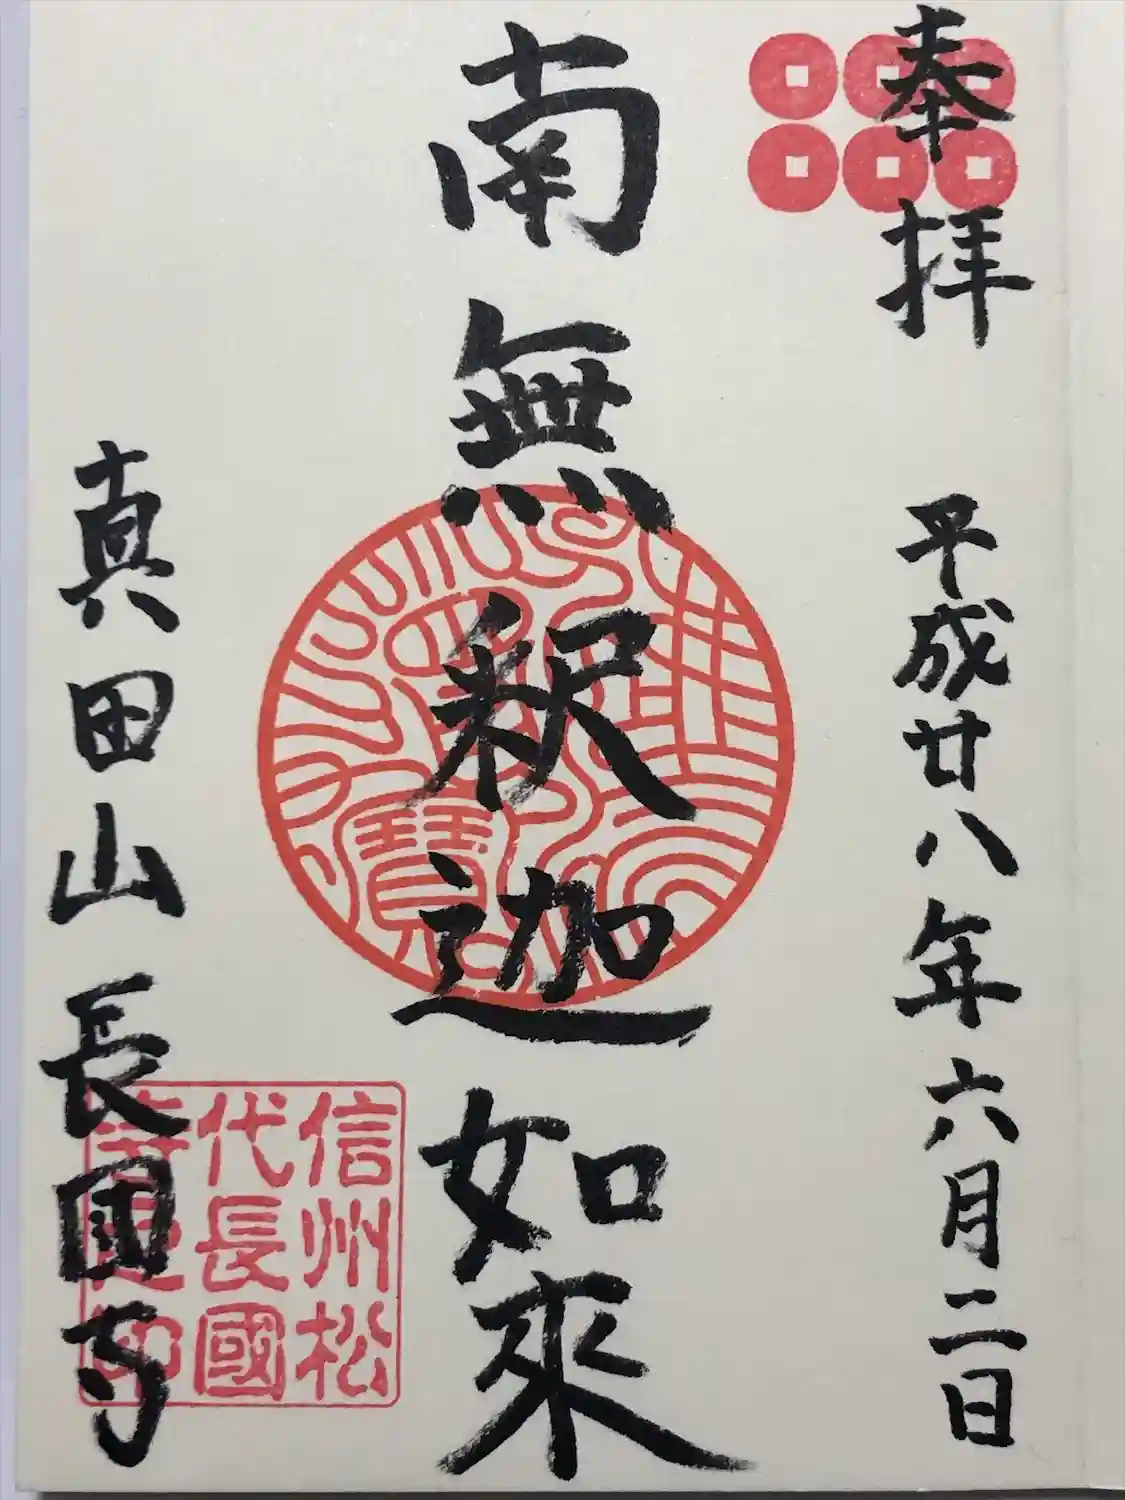 奉拝
平成廿八年六月二日
南無釈迦如來
真田山長国寺
信州松
代長國
寺之印